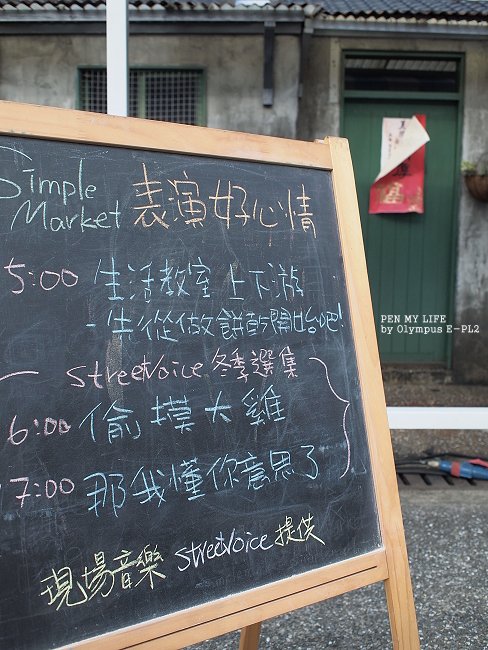 Simple Market 表演好心情
5:00 生活教室上下游
-先從做餅乾開始吧!
streetvoice 冬季選集
6:00 偷摸大雞
7:00 那我懂你意思了
現場音樂 streetvoice 提供
PEN MY LIFE
by Olympus E-PL2